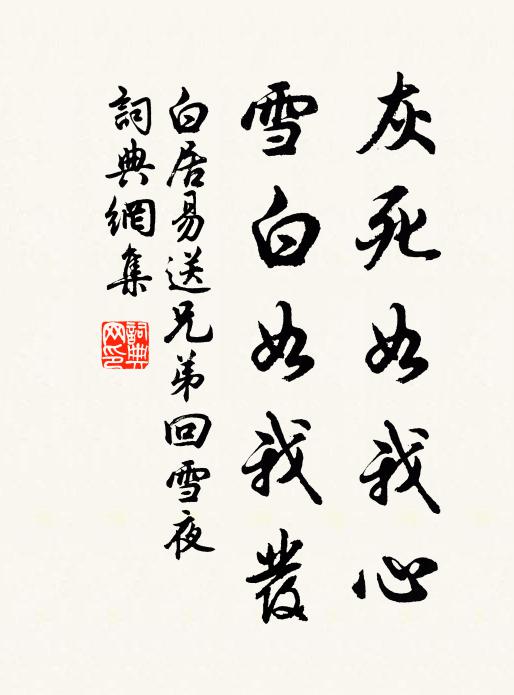 灰死如我心
雪白如我髮
白居易送兄弟回雪夜
詞典網集
詞典網印